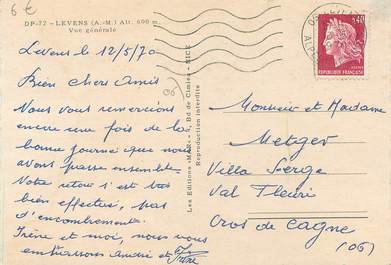 6€
DP-72 - LEVENS (A.-M.) Alt. 600 m.
Vue générale
Levens le 12/5/70
Bien chers Amis
Nous vous remercions
encore une fois de la
bonne journée que nous
avons passée ensemble.
Votre retour s'est très
bien effectué, pas
d'encombrement.
Irène et moi, nous vous
embrassons André et Irène
Les Editions "MAR" - Bd de Cimiez - NICE
Reproduction interdite
0,40
REPUBLIQUE FRANÇAISE
Monsieur et Madame
Metger
Villa Serge
Val Fleuri
Cros de Cagne
(06)